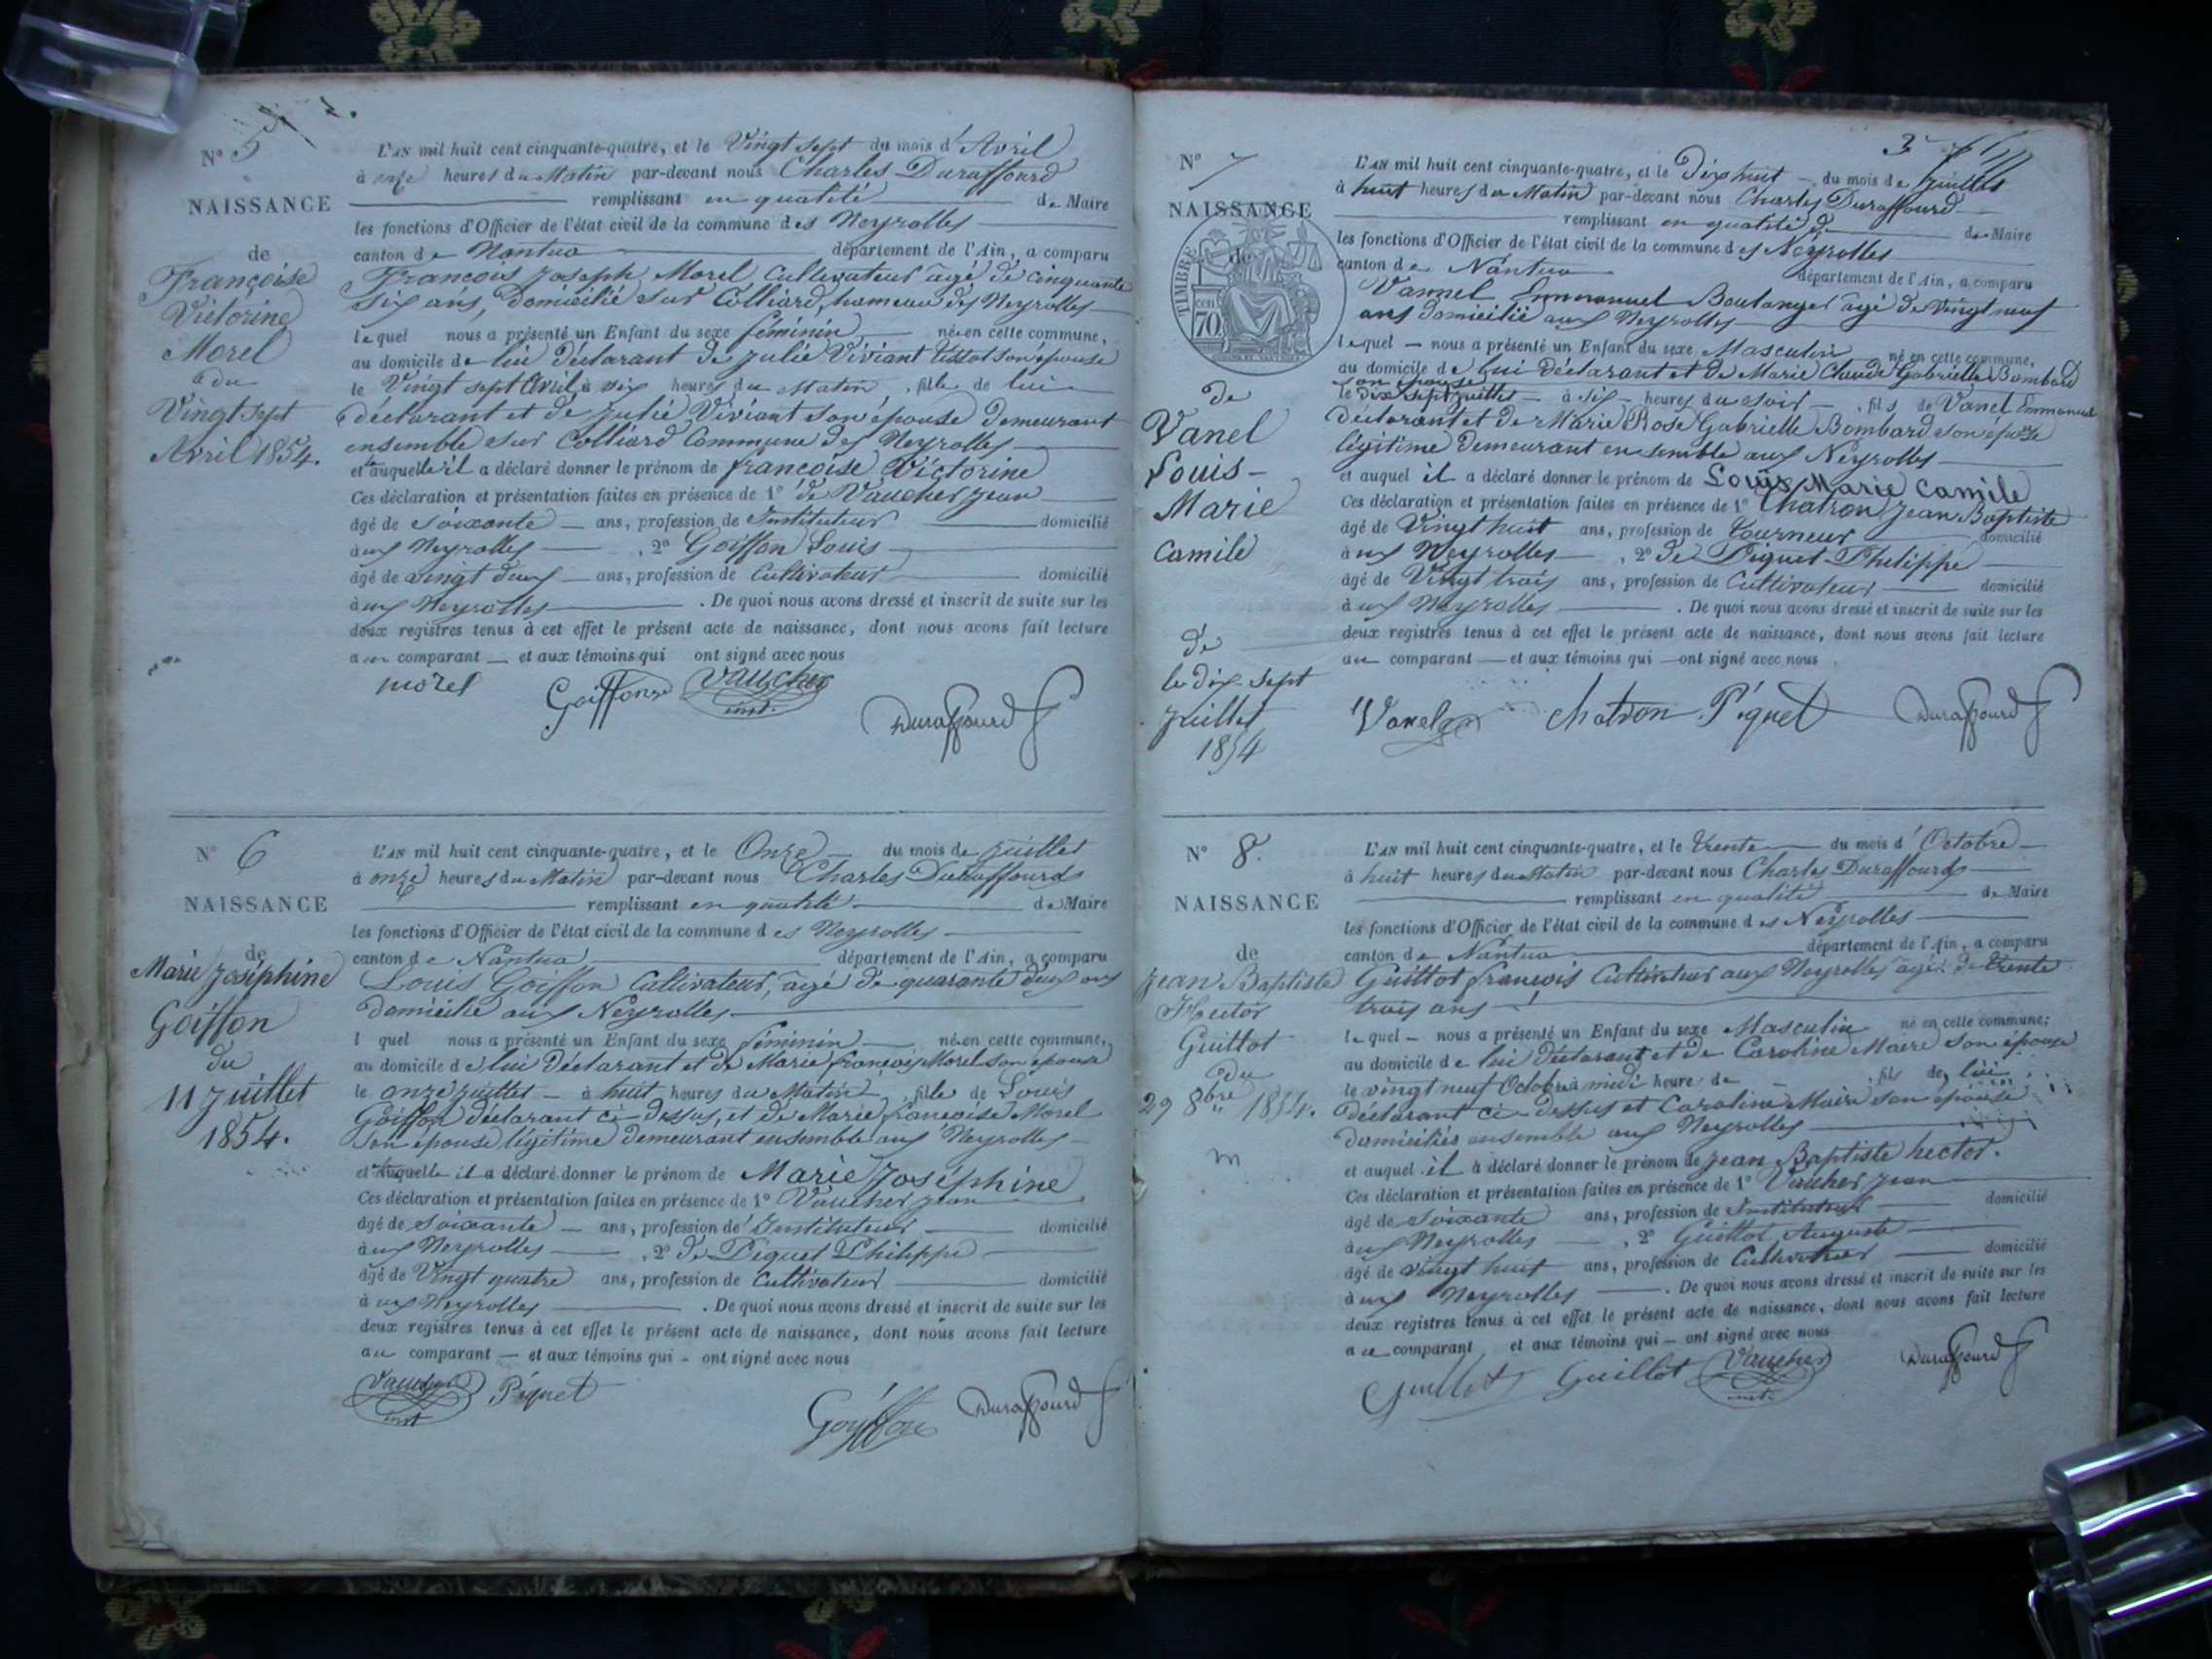 N° 5
NAISSANCE
de
Françoise
Victorine
Morel
du
Vingt sept
Avril 1854.
L'AN mil huit cent cinquante-quatre, et le Vingt sept du mois d'Avril
à onze heures du Matin par-devant nous Charles Duraffourd
remplissant en qualité de Maire
les fonctions d'Officier de l'état civil de la commune des Neyrolles
canton de Nantua département de l'Ain, a comparu
François Joseph Morel Cultivateur âgé de cinquante
Six ans, Domicilié sur Colliard, hameau des Neyrolles
lequel nous a présenté un Enfant du sexe féminin né en cette commune,
au domicile de lui déclarant de Julie Viviant Tissot son épouse
le Vingt sept Avril à six heures du Matin, fille de lui
déclarant et de Julie Viviant son épouse demeurant
ensemble sur Colliard Commune des Neyrolles
et auquelle il a déclaré donner le prénom de françoise Victorine
Ces déclaration et présentation faites en présence de 1° de Vaucher Jean
âgé de Soixante ans, profession de Instituteur domicilié
aux Neyrolles , 2° Goiffon Louis
âgé de vingt deux ans, profession de Cultivateur domicilié
aux Neyrolles . De quoi nous avons dressé et inscrit de suite sur les
deux registres tenus à cet effet le présent acte de naissance, dont nous avons fait lecture
au comparant et aux témoins qui ont signé avec nous
morel Goiffon Vaucher inst. Duraffourd
N° 6
NAISSANCE
de
Marie Joséphine
Goiffon
du
11 Juillet
1854.
L'AN mil huit cent cinquante-quatre, et le Onze du mois de Juillet
à onze heures du Matin par-devant nous Charles Duraffourd
remplissant en qualité de Maire
les fonctions d'Officier de l'état civil de la commune des Neyrolles
canton de Nantua département de l'Ain, a comparu
Louis Goiffon Cultivateur, âgé de quarante deux ans
Domicilié aux Neyrolles
l quel nous a présenté un Enfant du sexe féminin né en cette commune,
au domicile de lui Déclarant et de Marie françoise Morel son épouse
le onze juillet à huit heures du Matin, fille de Louis
Goiffon déclarant ci-dessus, et de Marie françoise Morel
son épouse légitime demeurant ensemble aux Neyrolles
et auquelle il a déclaré donner le prénom de Marie Joséphine
Ces déclaration et présentation faites en présence de 1° Vaucher Jean
âgé de Soixante ans, profession de Instituteur domicilié
aux Neyrolles , 2° de Piquet Philippe
âgé de Vingt quatre ans, profession de Cultivateur domicilié
aux Neyrolles . De quoi nous avons dressé et inscrit de suite sur les
deux registres tenus à cet effet le présent acte de naissance, dont nous avons fait lecture
au comparant et aux témoins qui ont signé avec nous
Vaucher inst Piquet Goiffon Duraffourd
3
N° 7
NAISSANCE
TIMBRE
70
de
Vanel
Louis-
Marie
Camile
de
le dix sept
Juillet
1854
L'AN mil huit cent cinquante-quatre, et le Dix huit du mois de Juillet
à huit heures du Matin par-devant nous Charles Duraffourd
remplissant en qualité de Maire
les fonctions d'Officier de l'état civil de la commune des Neyrolles
canton de Nantua département de l'Ain, a comparu
Vannel Emmanuel Boulanger âgé de Vingt neuf
ans domicilié aux Neyrolles
lequel nous a présenté un Enfant du sexe Masculin né en cette commune,
au domicile de lui déclarant et de Marie Claude Gabrielle Bombard
son épouse
le Dix Sept juillet à six heures du soir, fils de Vanel Emmanuel
déclarant et de Marie Rose Gabrielle Bombard son épouse
légitime demeurant ensemble aux Neyrolles
et auquel il a déclaré donner le prénom de Louis Marie Camile
Ces déclaration et présentation faites en présence de 1° Chatron Jean Baptiste
âgé de Vingt huit ans, profession de Tourneur domicilié
aux Neyrolles , 2° de Piquet Philippe
âgé de Vingt trois ans, profession de Cultivateur domicilié
aux Neyrolles . De quoi nous avons dressé et inscrit de suite sur les
deux registres tenus à cet effet le présent acte de naissance, dont nous avons fait lecture
au comparant et aux témoins qui ont signé avec nous
Vanel Chatron Piquet Duraffourd
N° 8.
NAISSANCE
de
Jean Baptiste
Hector
Guittot
du
29 8bre 1854.
L'AN mil huit cent cinquante-quatre, et le trente du mois d'Octobre
à huit heures du Matin par-devant nous Charles Duraffourd
remplissant en qualité de Maire
les fonctions d'Officier de l'état civil de la commune des Neyrolles
canton de Nantua département de l'Ain, a comparu
Guittot françois Cultivateur aux Neyrolles âgé de trente
trois ans
lequel nous a présenté un Enfant du sexe Masculin né en cette commune;
au domicile de lui déclarant et de Caroline Maire son épouse
le vingt neuf Octobre à midi heure de , fils de lui
déclarant ci-dessus et Caroline Maire son épouse
domiciliés ensemble aux Neyrolles
et auquel il a déclaré donner le prénom de Jean Baptiste hector.
Ces déclaration et présentation faites en présence de 1° Vaucher Jean
âgé de Soixante ans, profession de Instituteur domicilié
aux Neyrolles , 2° Guittot Auguste
âgé de vingt huit ans, profession de Cultivateur domicilié
aux Neyrolles . De quoi nous avons dressé et inscrit de suite sur les
deux registres tenus à cet effet le présent acte de naissance, dont nous avons fait lecture
au comparant et aux témoins qui ont signé avec nous
Guillot Guillot Vaucher inst. Duraffourd